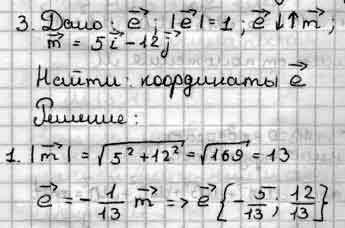 3. Дано: e⃗; |e⃗|=1; e⃗↓↑m⃗;
m⃗ = 5i⃗ - 12j⃗
Найти: координаты e⃗
Решение:
1. |m⃗| = √5²+12² = √169 = 13
e⃗ = -1/13 m⃗ => e⃗{-5/13; 12/13}